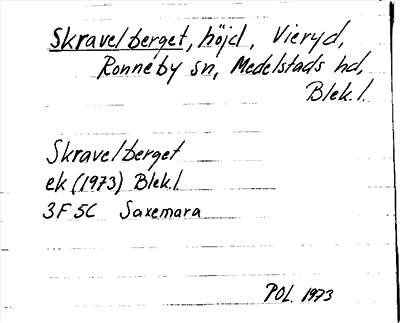 Skravelberget, höjd, Vieryd,
Ronneby sn, Medelstads hd,
Blek.l.
Skravelberget
ek (1973) Blek.l
3F5C Saxemara
POL. 1973